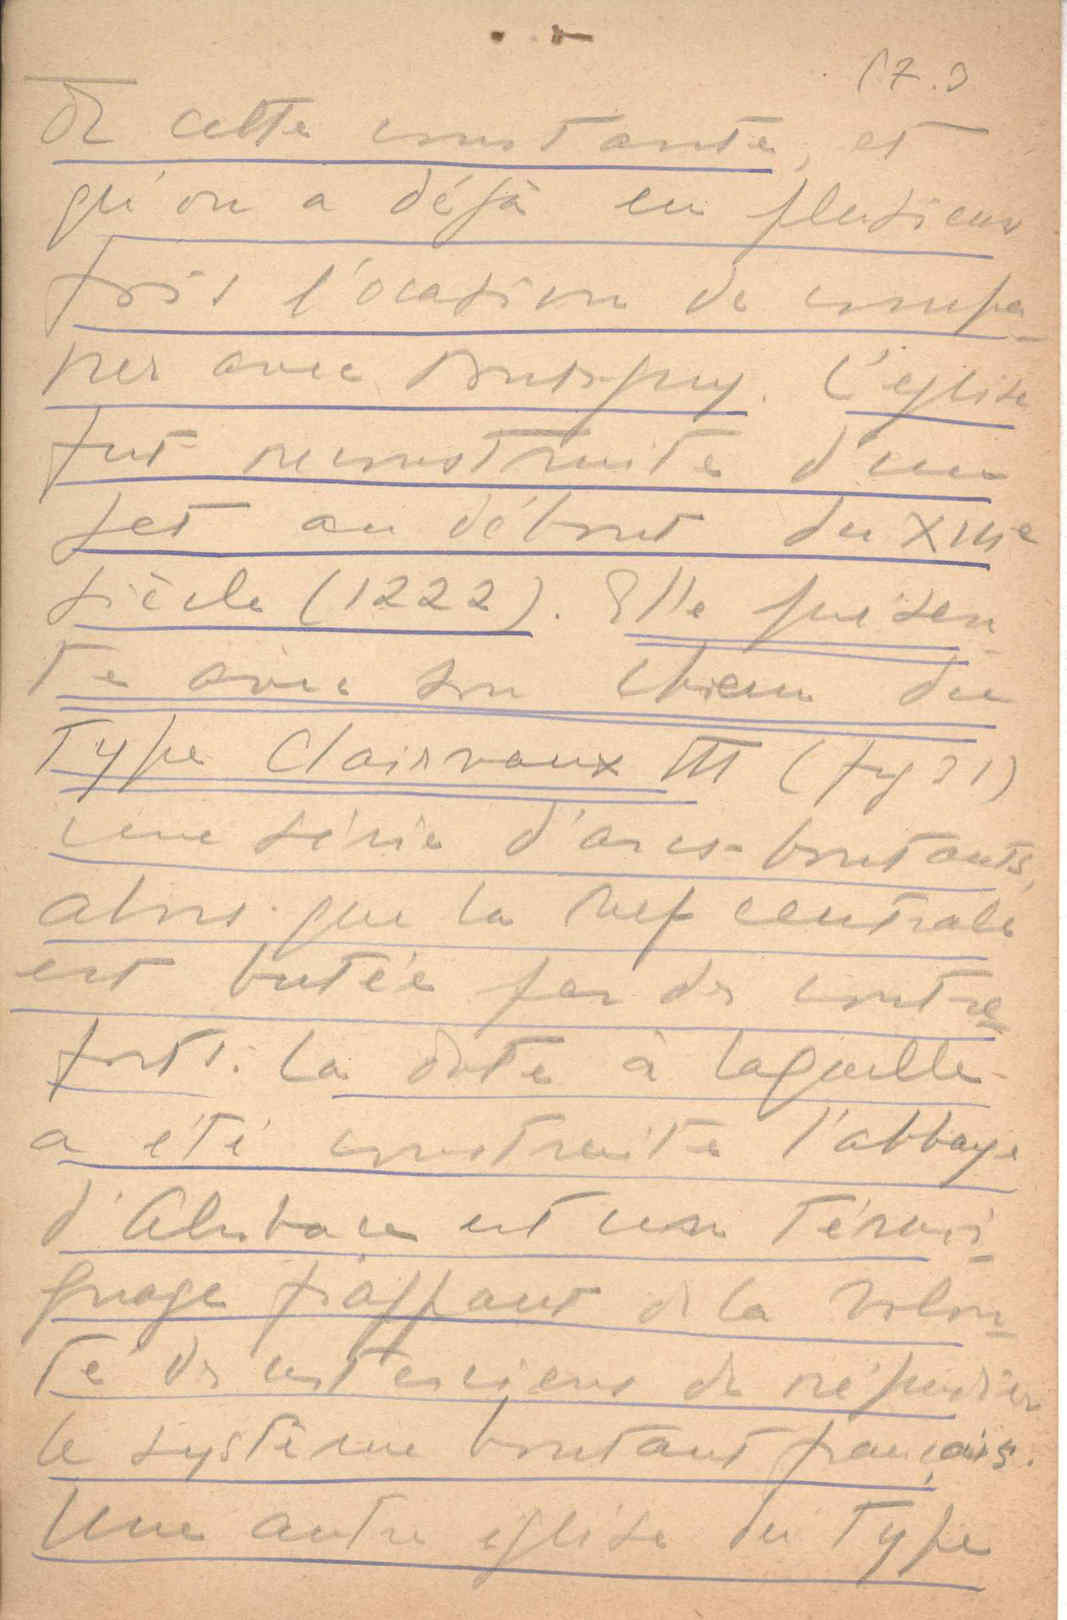 17.3
de cette constante, et
qu'on a déjà eu plusieurs
fois l'occasion de compa-
rer avec Pontigny. L'église
fut reconstruite d'un
jet au début du XIIIe
siècle (1222). Elle présen-
te avec son choeur du
type Clairvaux III (fig 31)
une série d'arcs-boutants,
alors que la nef centrale
est butée par des contre-
forts. La date à laquelle
a été construite l'abbaye
d'Alcobaca est un témoi-
gnage frappant de la volon-
té des cisterciens de répudier
le système boutant français.
Une autre église du type